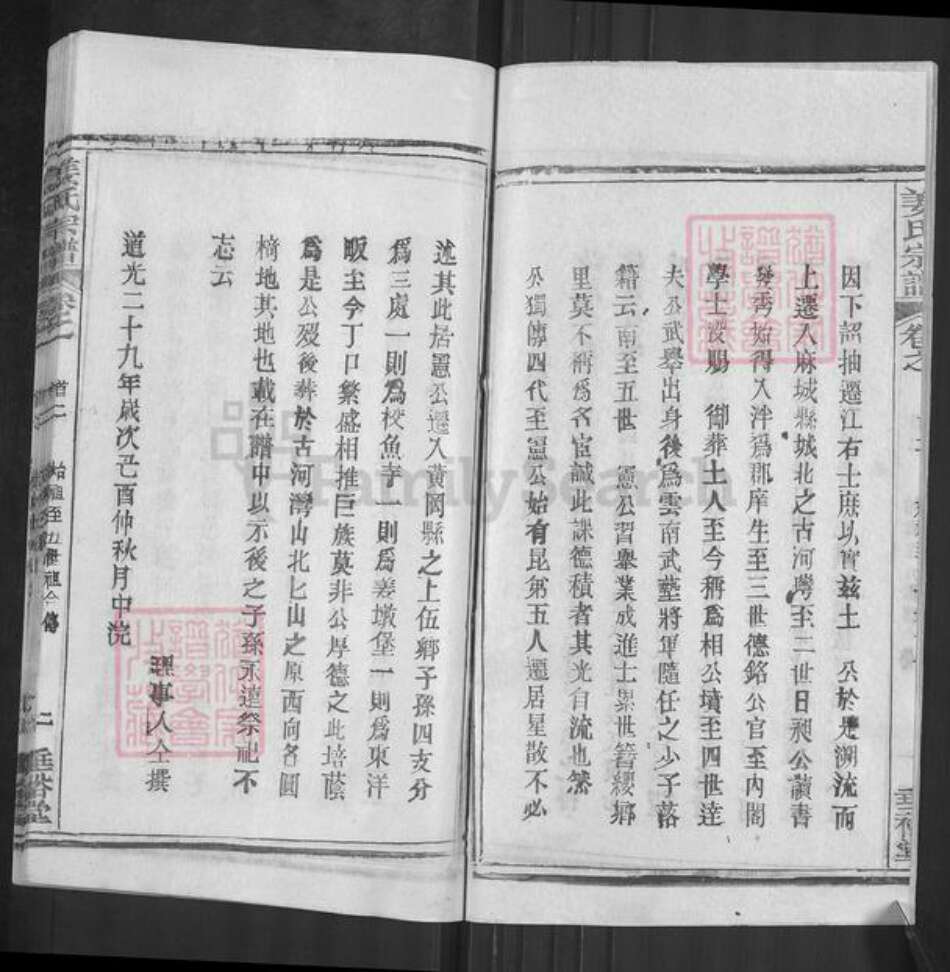 姜氏宗譜
卷之
因下詔抽遷江右士庶以實茲土　公於是溯流而
上遷入麻城縣城北之古河灣至二世日昶公讀書
發秀始得入泮爲郡庠生至三世德銘公官至內閣
學士後賜　御葬土人至今稱爲相公墳至四世逵
夫公武舉出身後爲雲南武藝將軍隨任之少子落
籍云南至五世　憲公習舉業成進士累世簪纓鄉
里莫不稱爲名宦誠此謀德積者其光自流也然
公獨傳四代至憲公始有昆弟五人遷居星散不必
述其此居憲公遷入黃岡縣之上伍鄉子孫四支分
爲三處一則爲校魚寺一則爲姜墩堡一則爲東洋
畈至今丁口繁盛相推巨族莫非公厚德之此培蔭
爲是公歿後葬於古河灣山北匕山之原西向名圓
椅地其地也載在譜中以示後之子孫永遠祭祀不
忘云
道光二十九年歲次己酉仲秋月中浣
理事人仝撰
姜氏宗譜
卷之一
二
FamilySearch